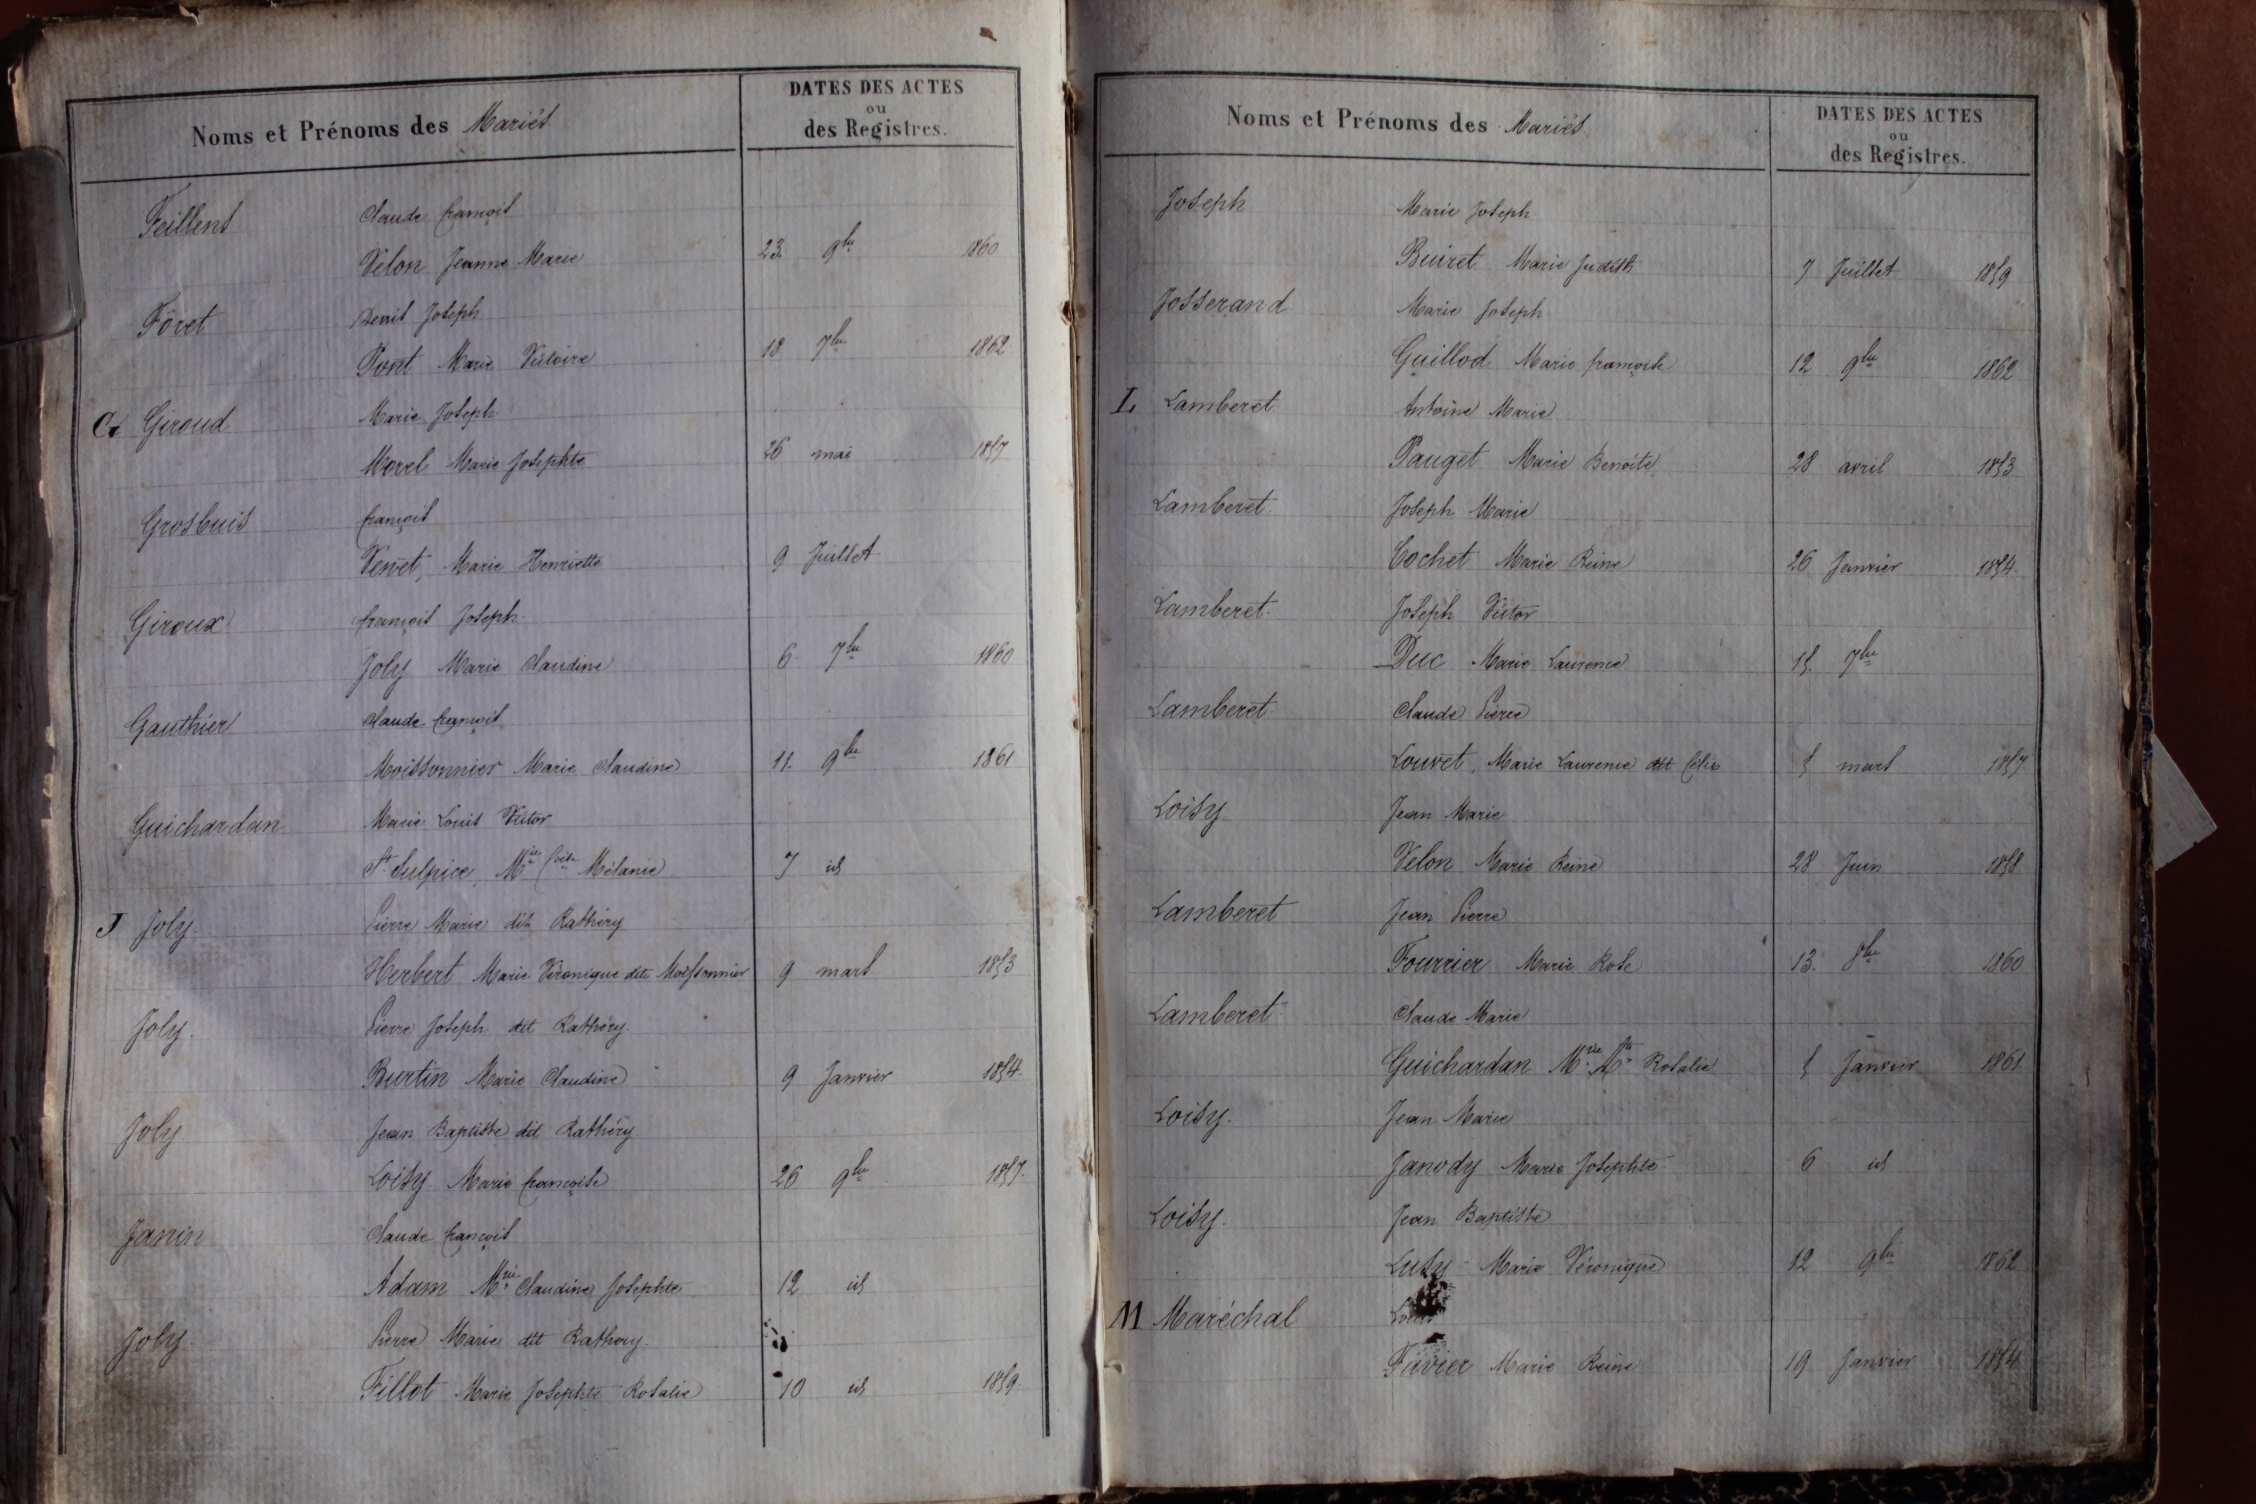 Noms et Prénoms des Mariés
DATES DES ACTES
ou
des Registres.
Feillens Claude françois
Velon Jeanne Marie 23 9bre 1860
Föret Denis Joseph
Pont Marie Victoire 18 7bre 1862
G Giroud Marie Joseph
Morel Marie Josephte 26 mai 1857
Grosbuis françois
Venet, Marie Henriette 9 Juillet
Giroux françois Joseph
Joly Marie Claudine 6 7bre 1860
Gauthier Claude françois
Moissonnier Marie Claudine 11. 9bre 1861
Guichardan Marie Louis Victor
St Sulpice, Mie Mélanie 7 id
J Joly Pierre Marie dit Rathéry
Herbert Marie Véronique dite Moissonnier 9 mars 1853
Joly. Pierre Joseph dit Rathéry
Burtin Marie Claudine 9 Janvier 1854
Joly Jean Baptiste dit Rathéry
Loisy Marie françoise 26 9bre 1857
Janin Claude françois
Adam Mrie Claudine Josephte 12 id
Joly Pierre Marie dit Rathery
Fillot Marie Josephte Rosalie 10 id 1859
Noms et Prénoms des Mariés
DATES DES ACTES
ou
des Registres.
Joseph Marie Joseph
Buiret Marie Judith 7 Juillet 1859
Josserand Marie Joseph
Guillod Marie françoise 12 9bre 1862
L Lamberet Antoine Marie
Pauget Marie Benoite 28 avril 1853
Lamberet Joseph Marie
Cochet Marie Reine 26 Janvier 1854
Lamberet Joseph Victor
Duc Marie Laurence 15 7bre
Lamberet Claude Pierre
Louvet, Marie Laurence dit 5 mars 1857
Loisy Jean Marie
Velon Marie Reine 28 Juin 1858
Lamberet Jean Pierre
Fourrier Marie Rose 13. 8bre 1860
Lamberet Claude Marie
Guichardan Mrie Rosalie 5 Janvier 1861
Loisy. Jean Marie
Janody Marie Josephte 6 id
Loisy. Jean Baptiste
Luisy Marie Véronique 12 9bre 1862
M Maréchal Louis
Favier Marie Reine 19 Janvier 1854